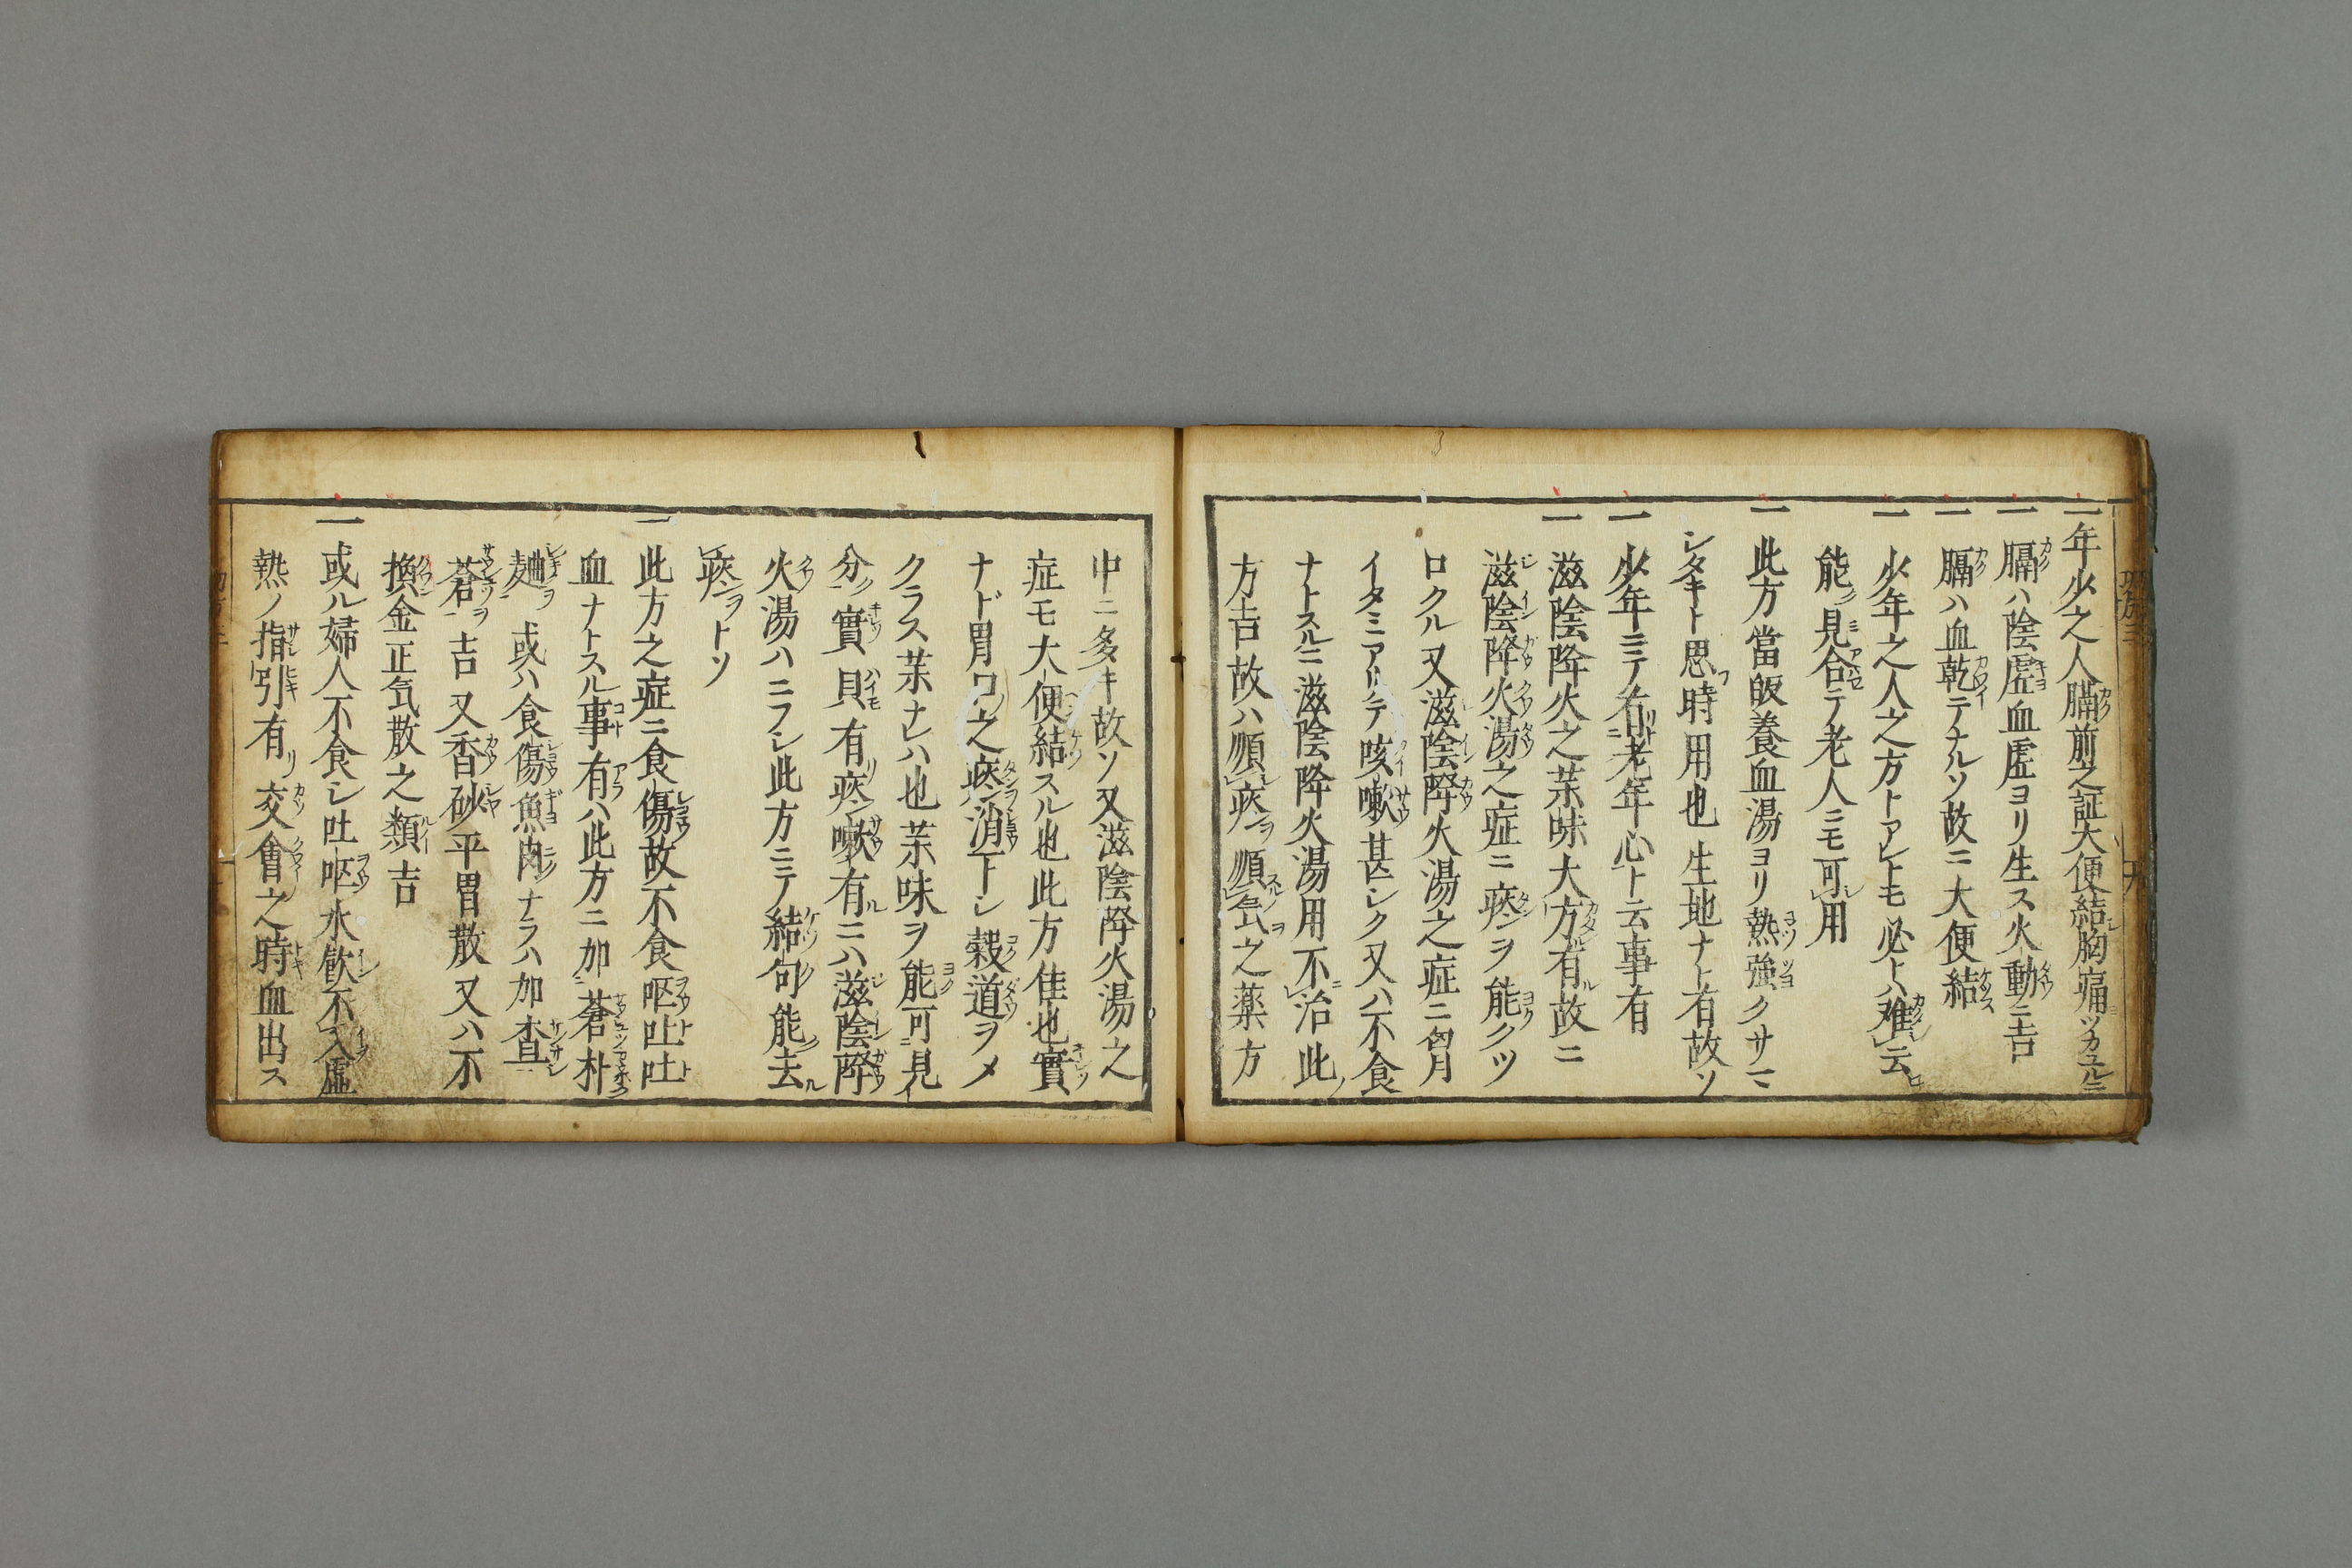 一年少之人膈前之証大便結胸痛ツカユルニ
一膈ハ陰虚血虚ヨリ生ス火動ニ吉
一膈ハ血乾テナルソ故ニ大便結
一少年之人之方トアレトモ必トハ難云
能見合テ老人ニモ可用
一此方當皈養血湯ヨリ熱強クサマ
シタキト思時用也生地ナト有故ソ
一少年ニテ右老年心ト云事有
一滋陰降火之茶味大方有故ニ
滋陰降火湯之症ニ痰ヲ能クツ
ロクル又滋陰降火湯之症ニ胷
イタミアリテ咳嗽甚シク又ハ不食
ナトスルニ滋陰降火湯用不治此
方吉故ハ順痰ヲ順氣之薬方
中ニ多キ故ソ又滋陰降火湯之
症モ大便結スル也此方佳也實
ナド胃口之痰消下シ穀道ヲメ
クラス茶ナレハ也茶味ヲ能可見
分實貝有痰嗽有ニハ滋陰降
火湯ハニフシ此方ニテ結句能去
痰ヲトソ
一此方之症ニ食傷故不食嘔吐吐
血ナトスル事有ハ此方ニ加蒼朴
麯或ハ食傷魚肉ナラハ加査
蒼吉又香砂平胃散又ハ不
換金正気散之類吉
一或ル婦人不食シ吐嘔水飲不入虚
熱ノ指引有交會之時血出ス